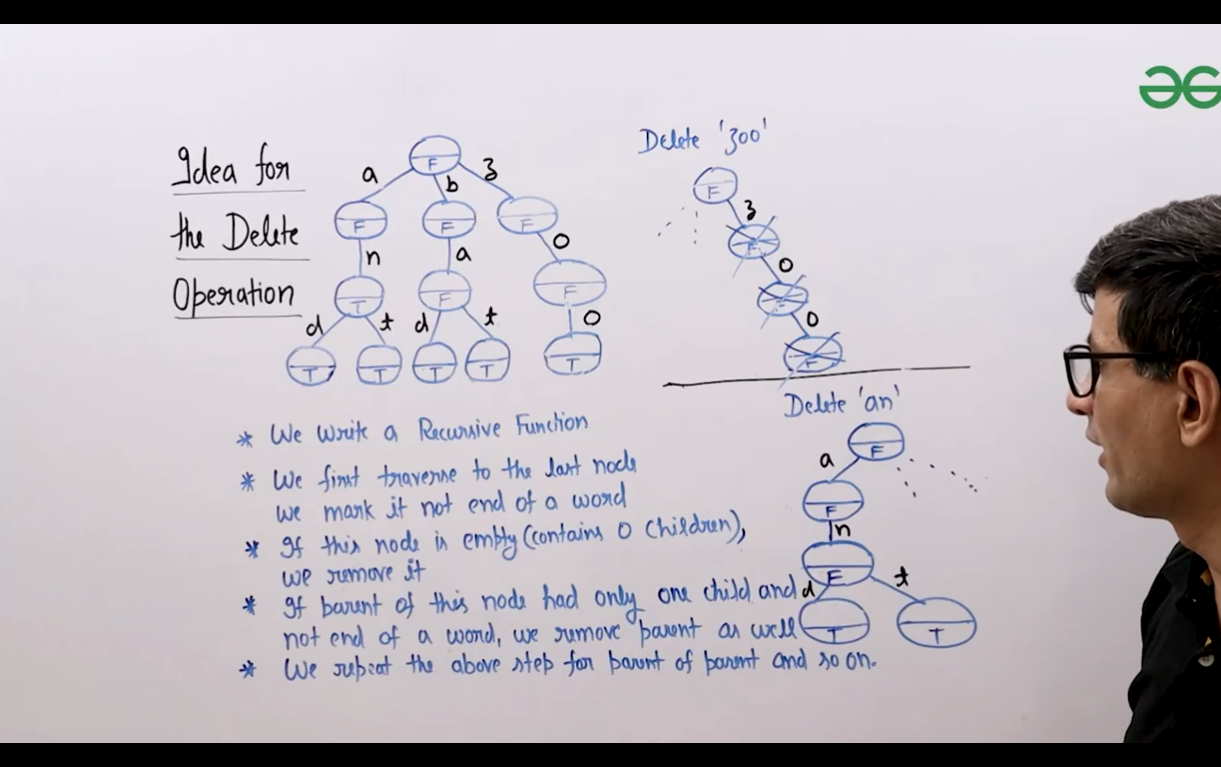 Idea for
the Delete
Operation
F
a b z
F F F
n a o
T F F
d t d t o
T T T T T
Delete 'zoo'
F
z
F
o
F
o
F
Delete 'an'
F
a
F
n
F
d t
T T
* We write a Recursive Function
* We first traverse to the last node
we mark it not end of a word
* If this node is empty (contains 0 children),
we remove it
* If parent of this node had only one child and
not end of a word, we remove parent as well
* We repeat the above step for parent of parent and so on.